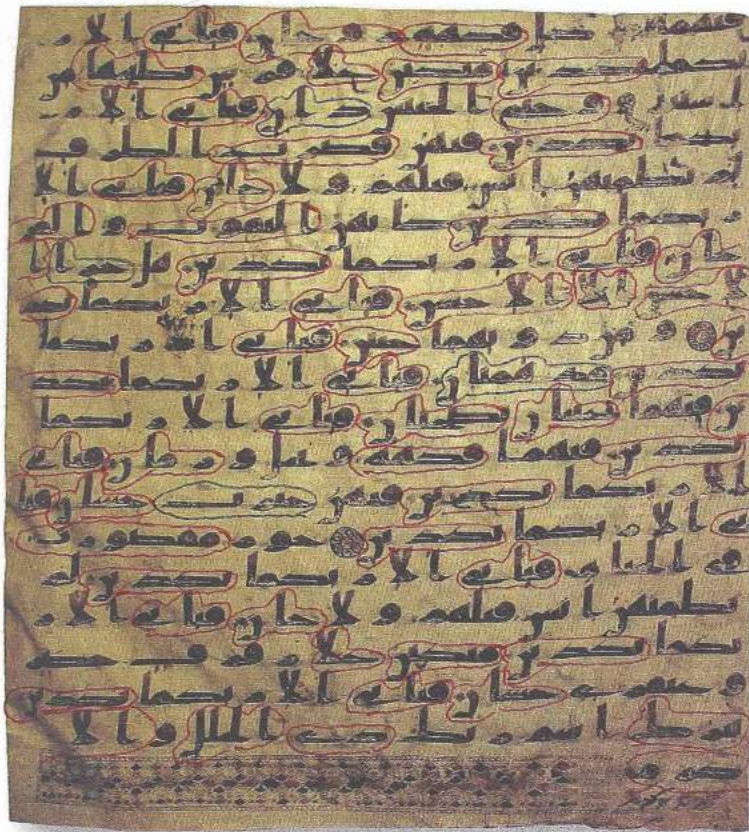 فيهما من كل فكهة زوجان فباي الا ر
بكما تكذبن متكين علا فرش بطينها من
استبرق وجنى الجنتين دان فباي الا ر
بكما تكذبن فيهن قصرت الطرف
لم يطمثهن انس قبلهم ولا جان فباي الا
ربكما تكذبن كانهن الياقوت والمر
جان فباي الا ربكما تكذبن هل جزا ا
لاحسن الا الاحسن فباي الا ربكما تكذ
بن ومن دونهما جنتن فباي الا ربكما
تكذبن مدهامتان فباي الا ربكما تكذ
بن فيهما عينان نضختان فباي الا ربكما
تكذبن فيهما فكهة ونخل ورمان فباي
الا ربكما تكذبن فيهن خيرت حسان فبا
ي الا ربكما تكذبن حور مقصورت
في الخيام فباي الا ربكما تكذبن لم
يطمثهن انس قبلهم ولا جان فباي الا ر
بكما تكذبن متكين علا رفرف خضر
وعبقري حسان فباي الا ربكما تكذبن
تبرك اسم ربك ذي الجلل والا
كرام